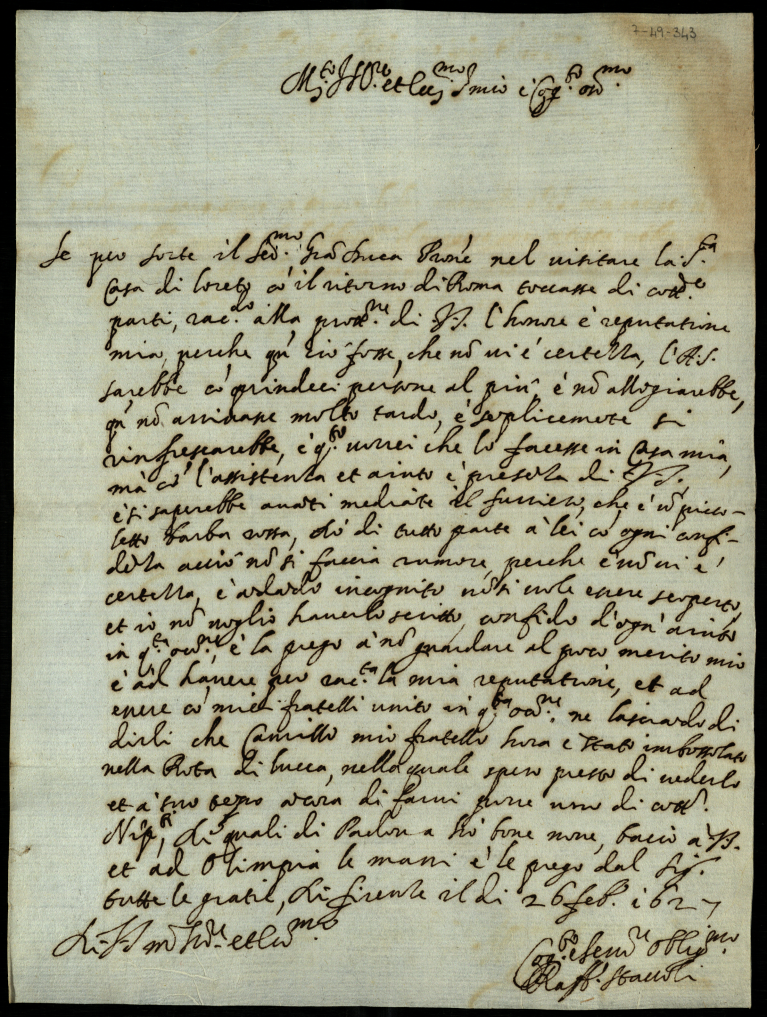 7-49-343
M.to Ill.re et Ecc.mo S. mio e Cog.to oss.mo
Se per sorte il Ser.mo Gra Duca Prone nel visitare la S.ta
Casa di Loreto co il ritorno di Roma toccasse di cotte
parti, rac.do alla prott.ne di V.S. l'honore è reputatione
mia, perche qn ciò fosse, che nō vi è certezza, l'A.S.
sarebbe cō quindeci persone al più è nō allogiarebbe,
qn nō arrivasse molto tardo, è semplicemēte si
rinfrescarebbe, è q.to vorrei che lo facesse in Casa mia,
mà cō l'assistenza et aiuto è presēza di V.S.,
è si saperebbe avāti mediāte il furriero, che è vō picco-
letto barba rossa, dò di tutto parte à lei cō ogni confi-
dēza acciò nō si faccia rumore, perche è nō vi è
certezza, è andādo incognito nō si vole essere scoperto,
et io nō voglio haverlo scritto, confido d'ogn aiuto
in q.ta occ.ne, è la prego à nō guardare al poco merito mio
è ad havere per rac.ta la mia reputatione, et ad
essere cō miei fratelli unito in q.ta occ.ne ne lasciādo di
dirli che Camillo mio fratello hora è stato imbossolato
nella Rota di Lucca, nella quale spero presto di vederlo
et à suo tēpo ācora di farvi porre uno di cott.i
Nip.ti, di quali di Padova hò bone nove, bacio à V.S.
et ad Olimpia le mani è le prego dal Sig.
tutte le gratie, di firenze il di 26 feb. 1627
Di V.S. m.to Ill.re et Ecc.ma
Cog.to e Ser.re Oblig.mo
Raff. Staccoli